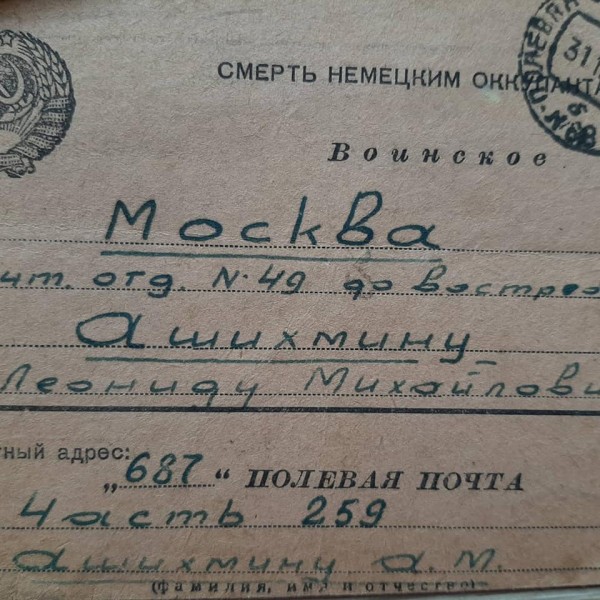 СМЕРТЬ НЕМЕЦКИМ ОККУПАНТА
31
Воинское
Москва
чт. отд. N-49 до востре
Ашихмину
Леониду Михайлови
тный адрес:
„687“ ПОЛЕВАЯ ПОЧТА
Часть 259
Ашихмину А.М.
(фамилия, имя и отчество)